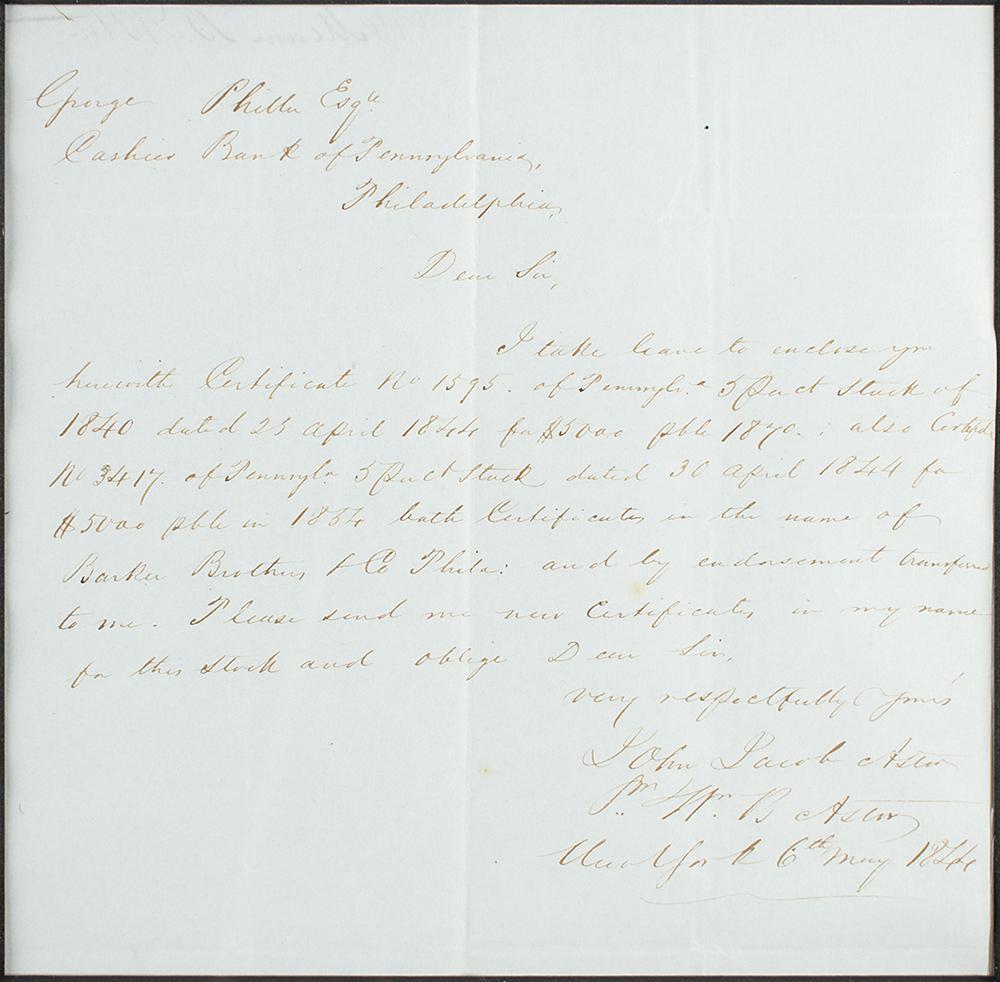 George Philler Esqre
Cashier Bank of Pennsylvania,
Philadelphia,
Dear Sir,
I take leave to enclose you
herewith Certificate No 1595. of Pennsylva 5 P ct Stock of
1840 dated 23 April 1844 for $5000 pble 1870. ; also Certificate
No 3417. of Pennsyla 5 P ct Stock dated 30 April 1844 for
$5000 pble in 1854 both Certificates in the name of
Barker Brothers & Co Phila: and by endorsement transferred
to me. Please send me new Certificates in my name
for this stock and oblige Dear Sir,
very respectfully Yours
John Jacob Astor
Pr. Wm. B Astor
New York 6th May 1844